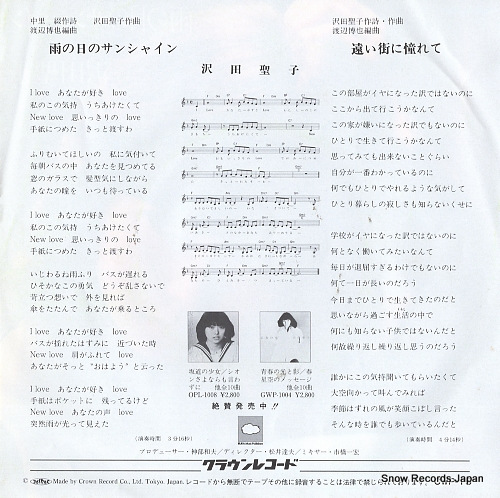 中里 綴作詩 沢田聖子作曲
渡辺博也編曲
雨の日のサンシャイン
沢田聖子作詩・作曲
渡辺博也編曲
遠い街に憧れて
沢田聖子
I love あなたが好き love
私のこの気持 うちあけたくて
New love 思いっきりの love
手紙につめた きっと渡すわ
ふりむいてほしいの 私に気付いて
毎朝バスの中 あなたを見つめてる
窓のガラスで 髪型気にしながら
あなたの瞳を いつも待っている
I love あなたが好き love
私のこの気持 うちあけたくて
New love 思いっきりの love
手紙につめた きっと渡すわ
いじわるね雨ふり バスが遅れる
ひそかなこの勇気 どうぞ乱さないで
苛立つ想いで 外を見れば
傘をたたんで あなたが乗るところ
I love あなたが好き love
バスが揺れたはずみに 近づいた時
New love 肩がふれて love
あなたがそっと “おはよう”と云った
I love あなたが好き love
手紙はポケットに 残ってるけど
New love あなたの声 love
突然雨が光って見えた
(演奏時間 3分16秒)
この部屋がイヤになった訳ではないのに
ここから出て行こうかなんて
この家が嫌いになった訳でもないのに
ひとりで生きて行こうかなんて
思ってみても出来ないことぐらい
自分が一番わかっているのに
何でもひとりでやれるような気がして
ひとり暮らしの寂しさも知らないくせに
学校がイヤになった訳ではないのに
何となく働いてみたいなんて
毎日が退屈すぎるわけでもないのに
何て一日が長いのだろう
今日までひとりで生きてきたのだと
思いながら過ごす生活の中で
何にも知らない子供ではないんだと
何故繰り返し繰り返し思うのだろう
誰かにこの気持聞いてもらいたくて
大空向かって叫んでみれば
季節はずれの風が笑顔こぼし言った
そんな時を誰でも歩いているんだと
(演奏時間 4分14秒)
坂道の少女／シオンさよならも言わずに 他全10曲
OPL-1008 ¥2,800
青春の光と影／春星空のメッセージ 他全10曲
GWP-1004 ¥2,800
絶賛発売中!!
プロデューサー・神部和夫／ディレクター・松井達夫／ミキサー・市橋一宏
クラウンレコード
Made by Crown Record Co., Ltd. Tokyo. Japan. レコードから無断でテープその他に録音することは法律で禁じられております。
Snow Records Japan
www.snowrecords.jp